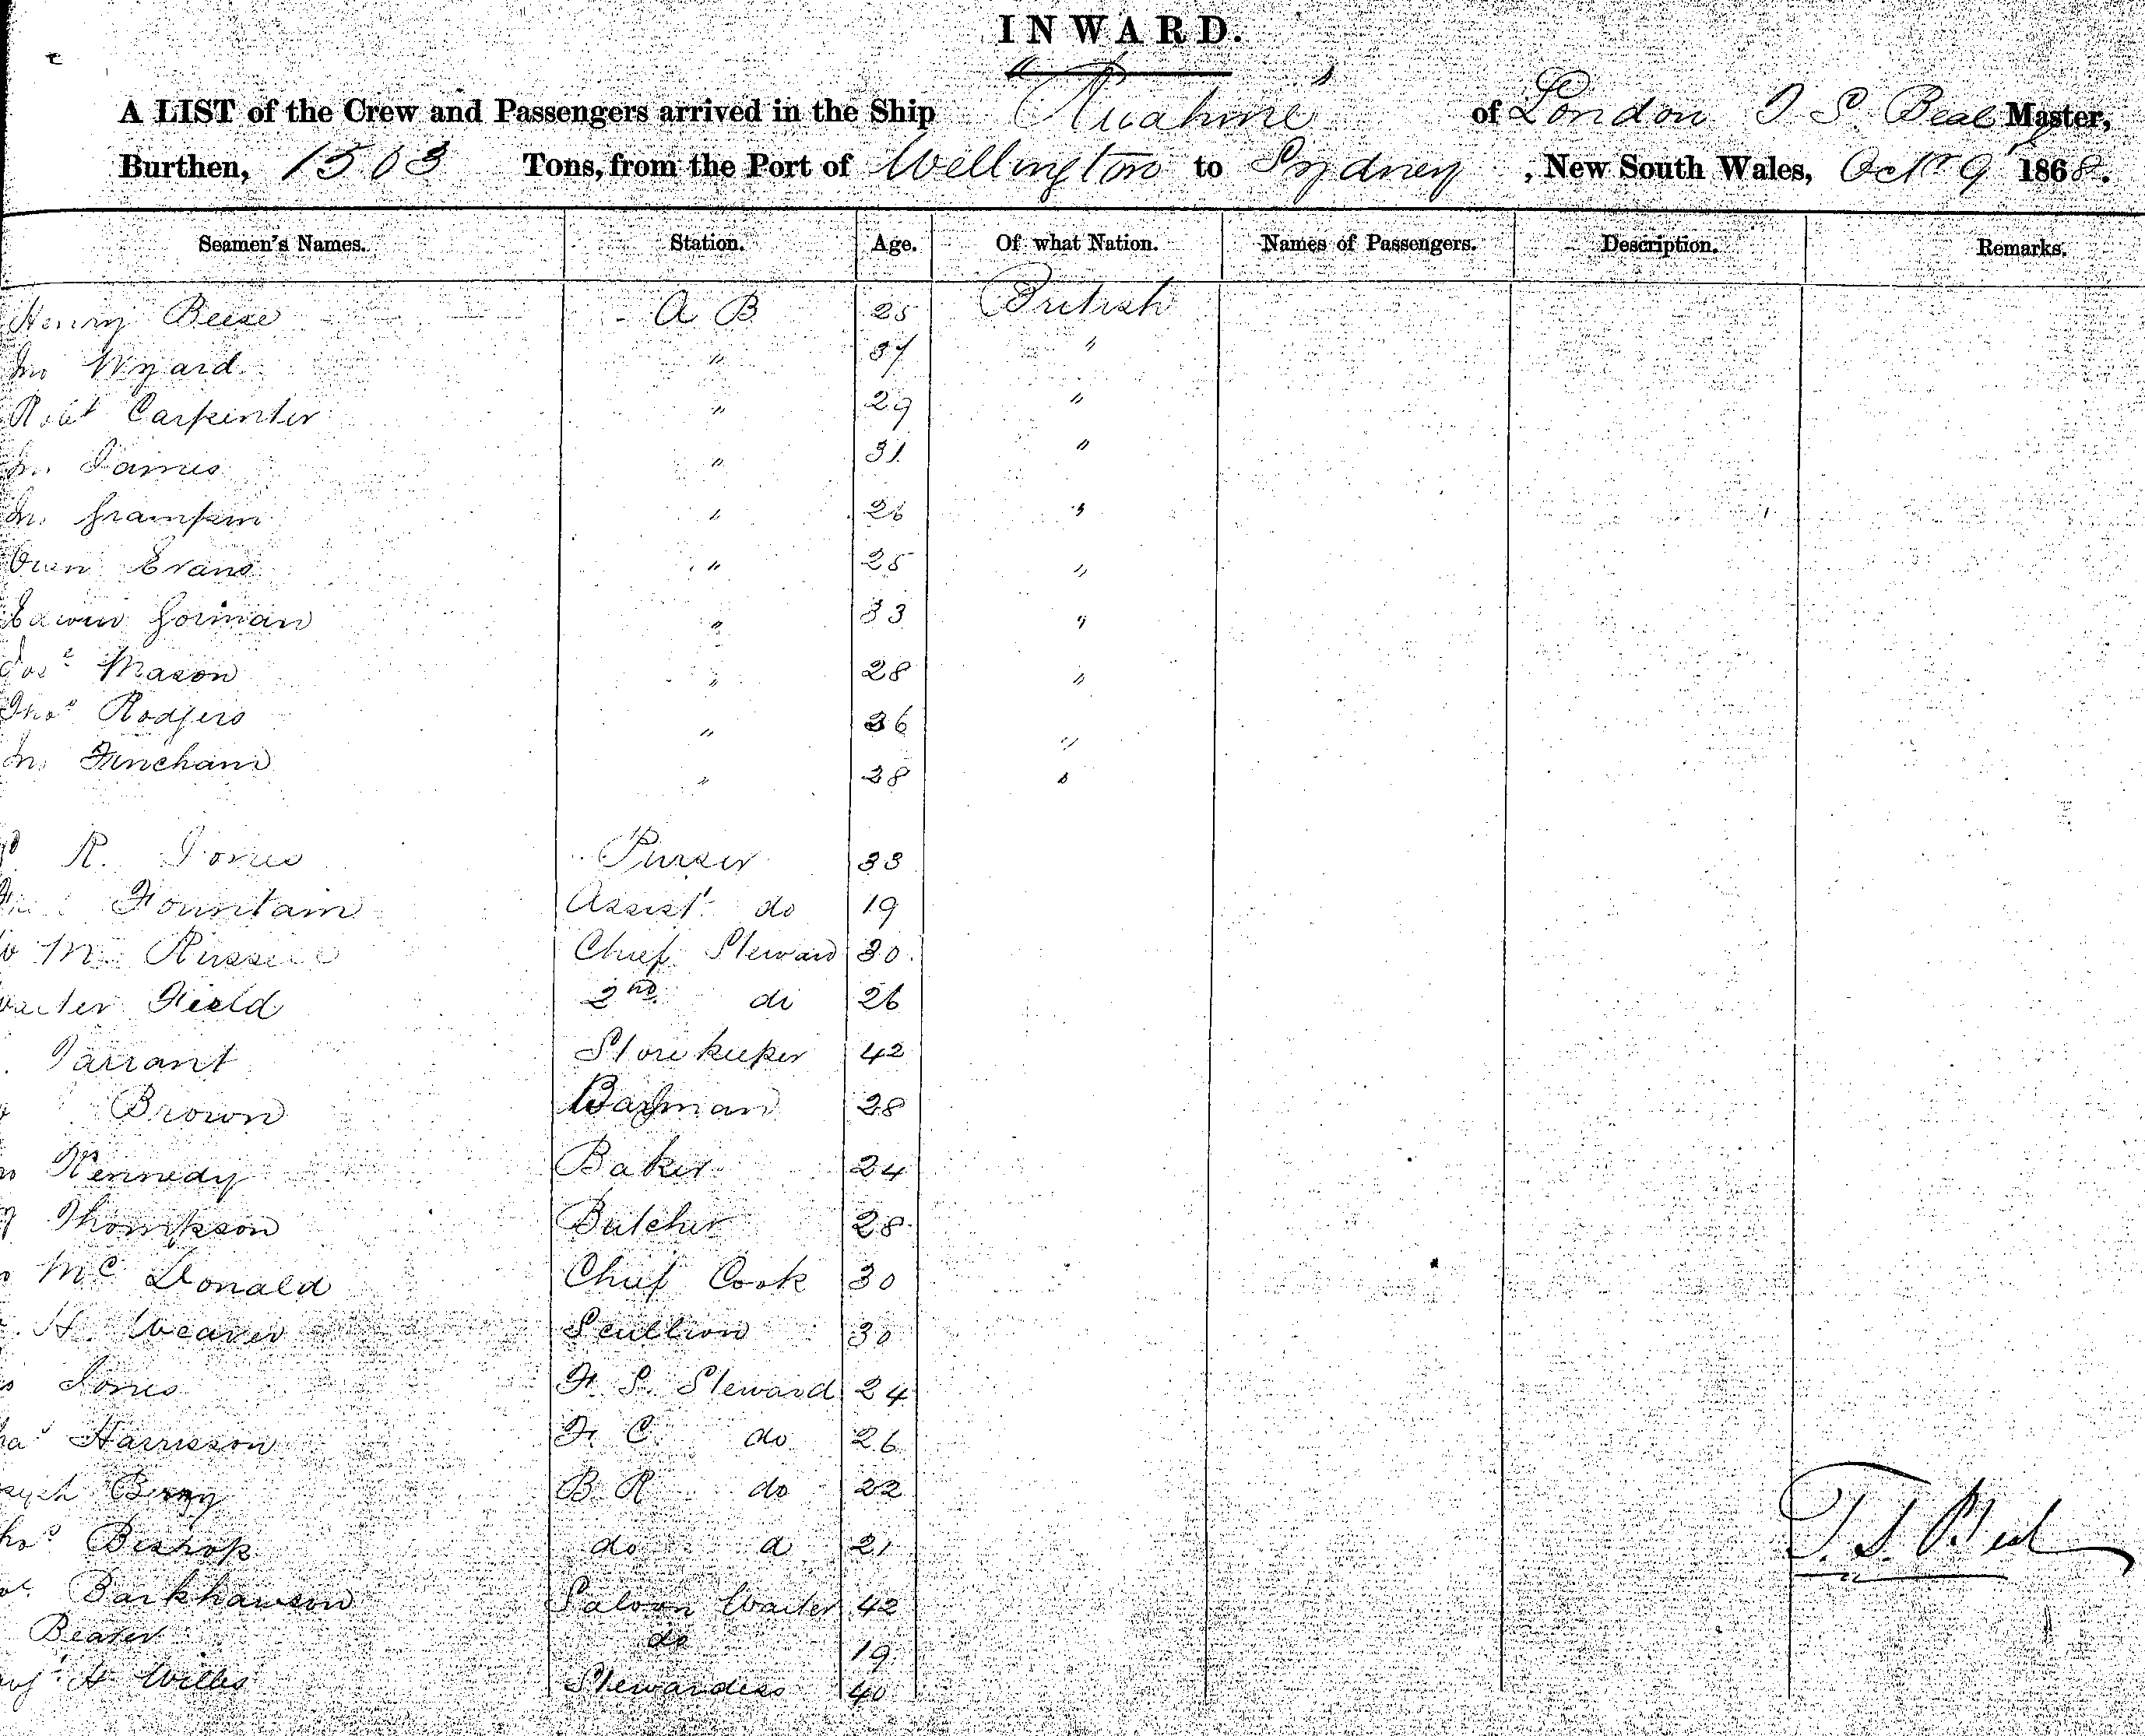 INWARD.
A LIST of the Crew and Passengers arrived in the Ship "Ruahine" of London T S Beal Master,
Burthen, 1503 Tons, from the Port of Wellington to Sydney, New South Wales, Octr 9 1868.
Seamen's Names. Station. Age. Of what Nation. Names of Passengers. Description. Remarks.
Henry A B 25 British
Jno Wyard " 37 "
Robt Carpenter " 29 "
Jno James " 31 "
Jno " 26 "
Owen Evans " 25 "
Edwin Gorman " 33 "
Mason " 28 "
Thos Rodgers " 36 "
Jno Fincham " 38 "
R. Jones Purser 33
Fountain Assist do 19
M Russell Chief Steward 30
Walter Field 2nd do 26
Tarrant Storekeeper 42
Brown Barman 28
Kennedy Baker 24
Thompson Butcher 28
Mc Donald Chief Cook 30
H. Weaver Scullion 30
Jones F. S. Steward 24
Harrisson F. C. do 26
Berry B. R do 22
Thos Bishop do d 21
Barkhawson Saloon Waiter 42
Beaver do 19
H Willis Stewardess 40
T. S. Beal